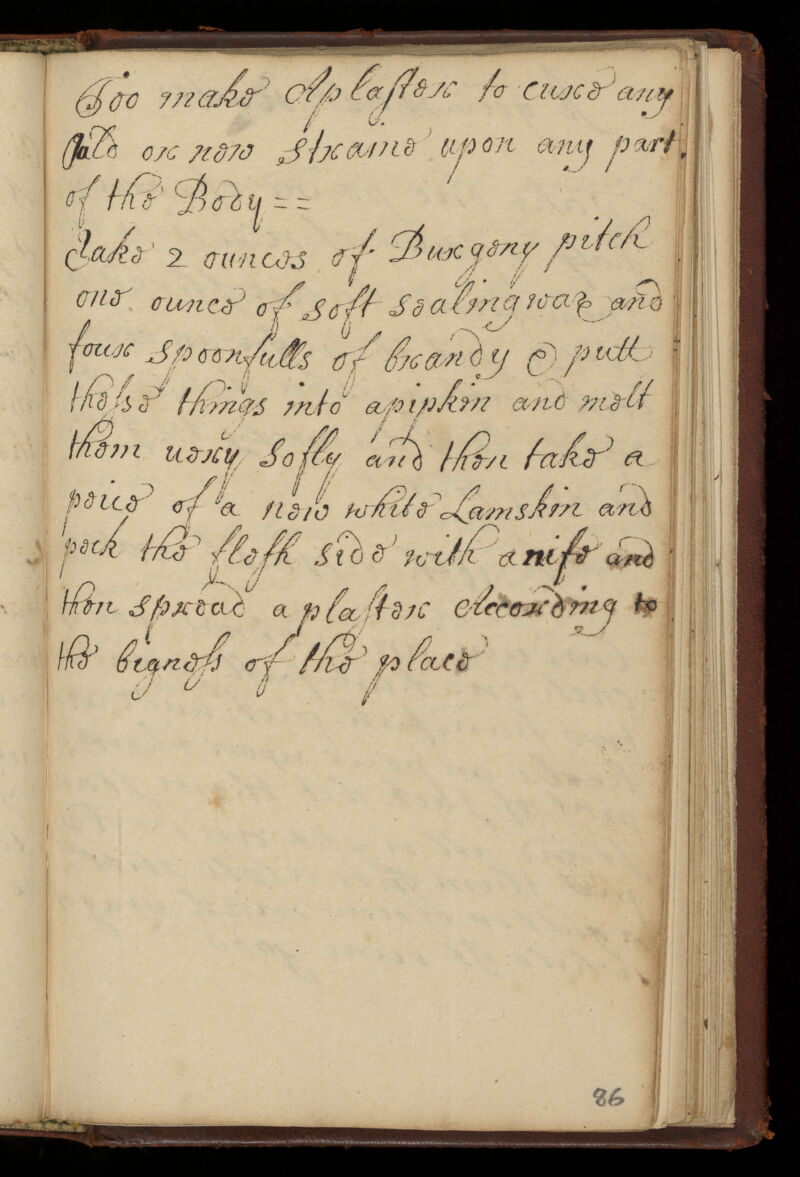 Too make A plaster to cure any
old or new straine upon any part
of the Body ==
Take 2 ounces of Burgeny pitch
one ounce of soft sealing wax and
four spoonfulls of brandy & putt
thesse things into a pipkin and melt
them uery sofly and then take a
peice of a new white Lamskin and
peck the flesh side with a nife and
then spread a plaster According to
the bigness of the place
86